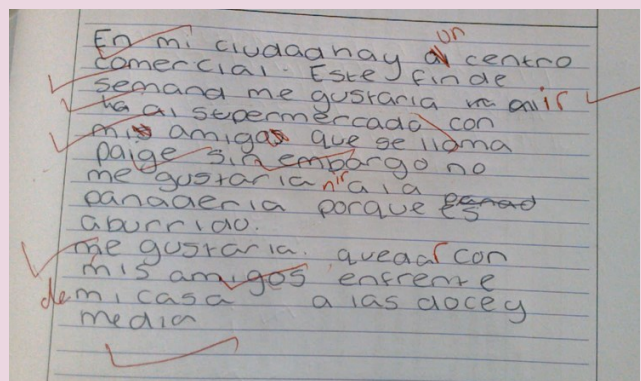 En mi ciudad hay un centro
comercial. Este fin de
semana me gustaria ir
al supermercado con
mi amiga que se llama
paige sin embargo no
me gustaria ir a la
panaderia porque es
aburrido.
me gustaria. quedar con
mis amigos enfrente
de mi casa a las doce y
media